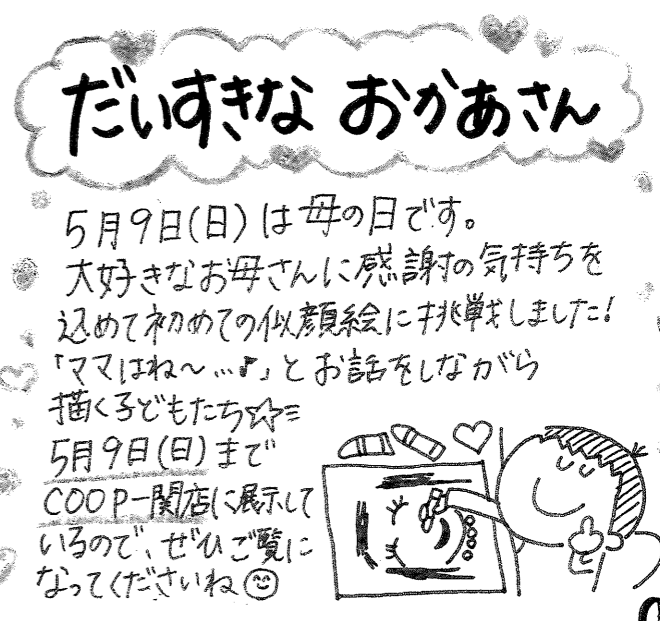 だいすきな おかあさん
5月9日(日)は母の日です。
大好きなお母さんに感謝の気持ちを
込めて初めての似顔絵に挑戦しました!
「ママはね〜…♪」とお話をしながら
描く子どもたち☆≡
5月9日(日)まで
COOP一関店に展示して
いるので、ぜひご覧に
なってくださいね☺